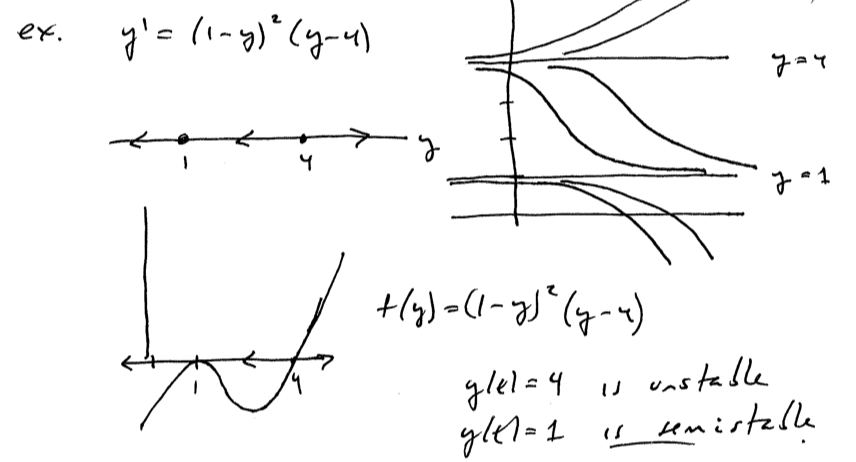 ex. y' = (1-y)² (y-4)
y
1 4
y = 4
y = 1
1 4
f(y) = (1-y)² (y-4)
y(t) = 4 is unstable
y(t) = 1 is semistable.